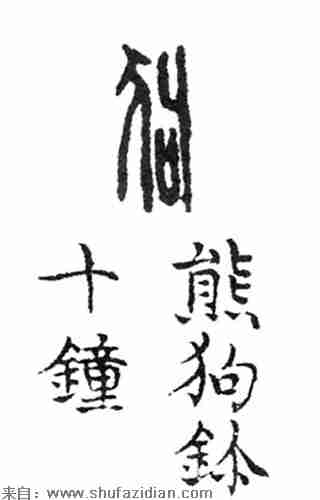 狗
熊狗鉨
十鐘
来自：www.shufazidian.com